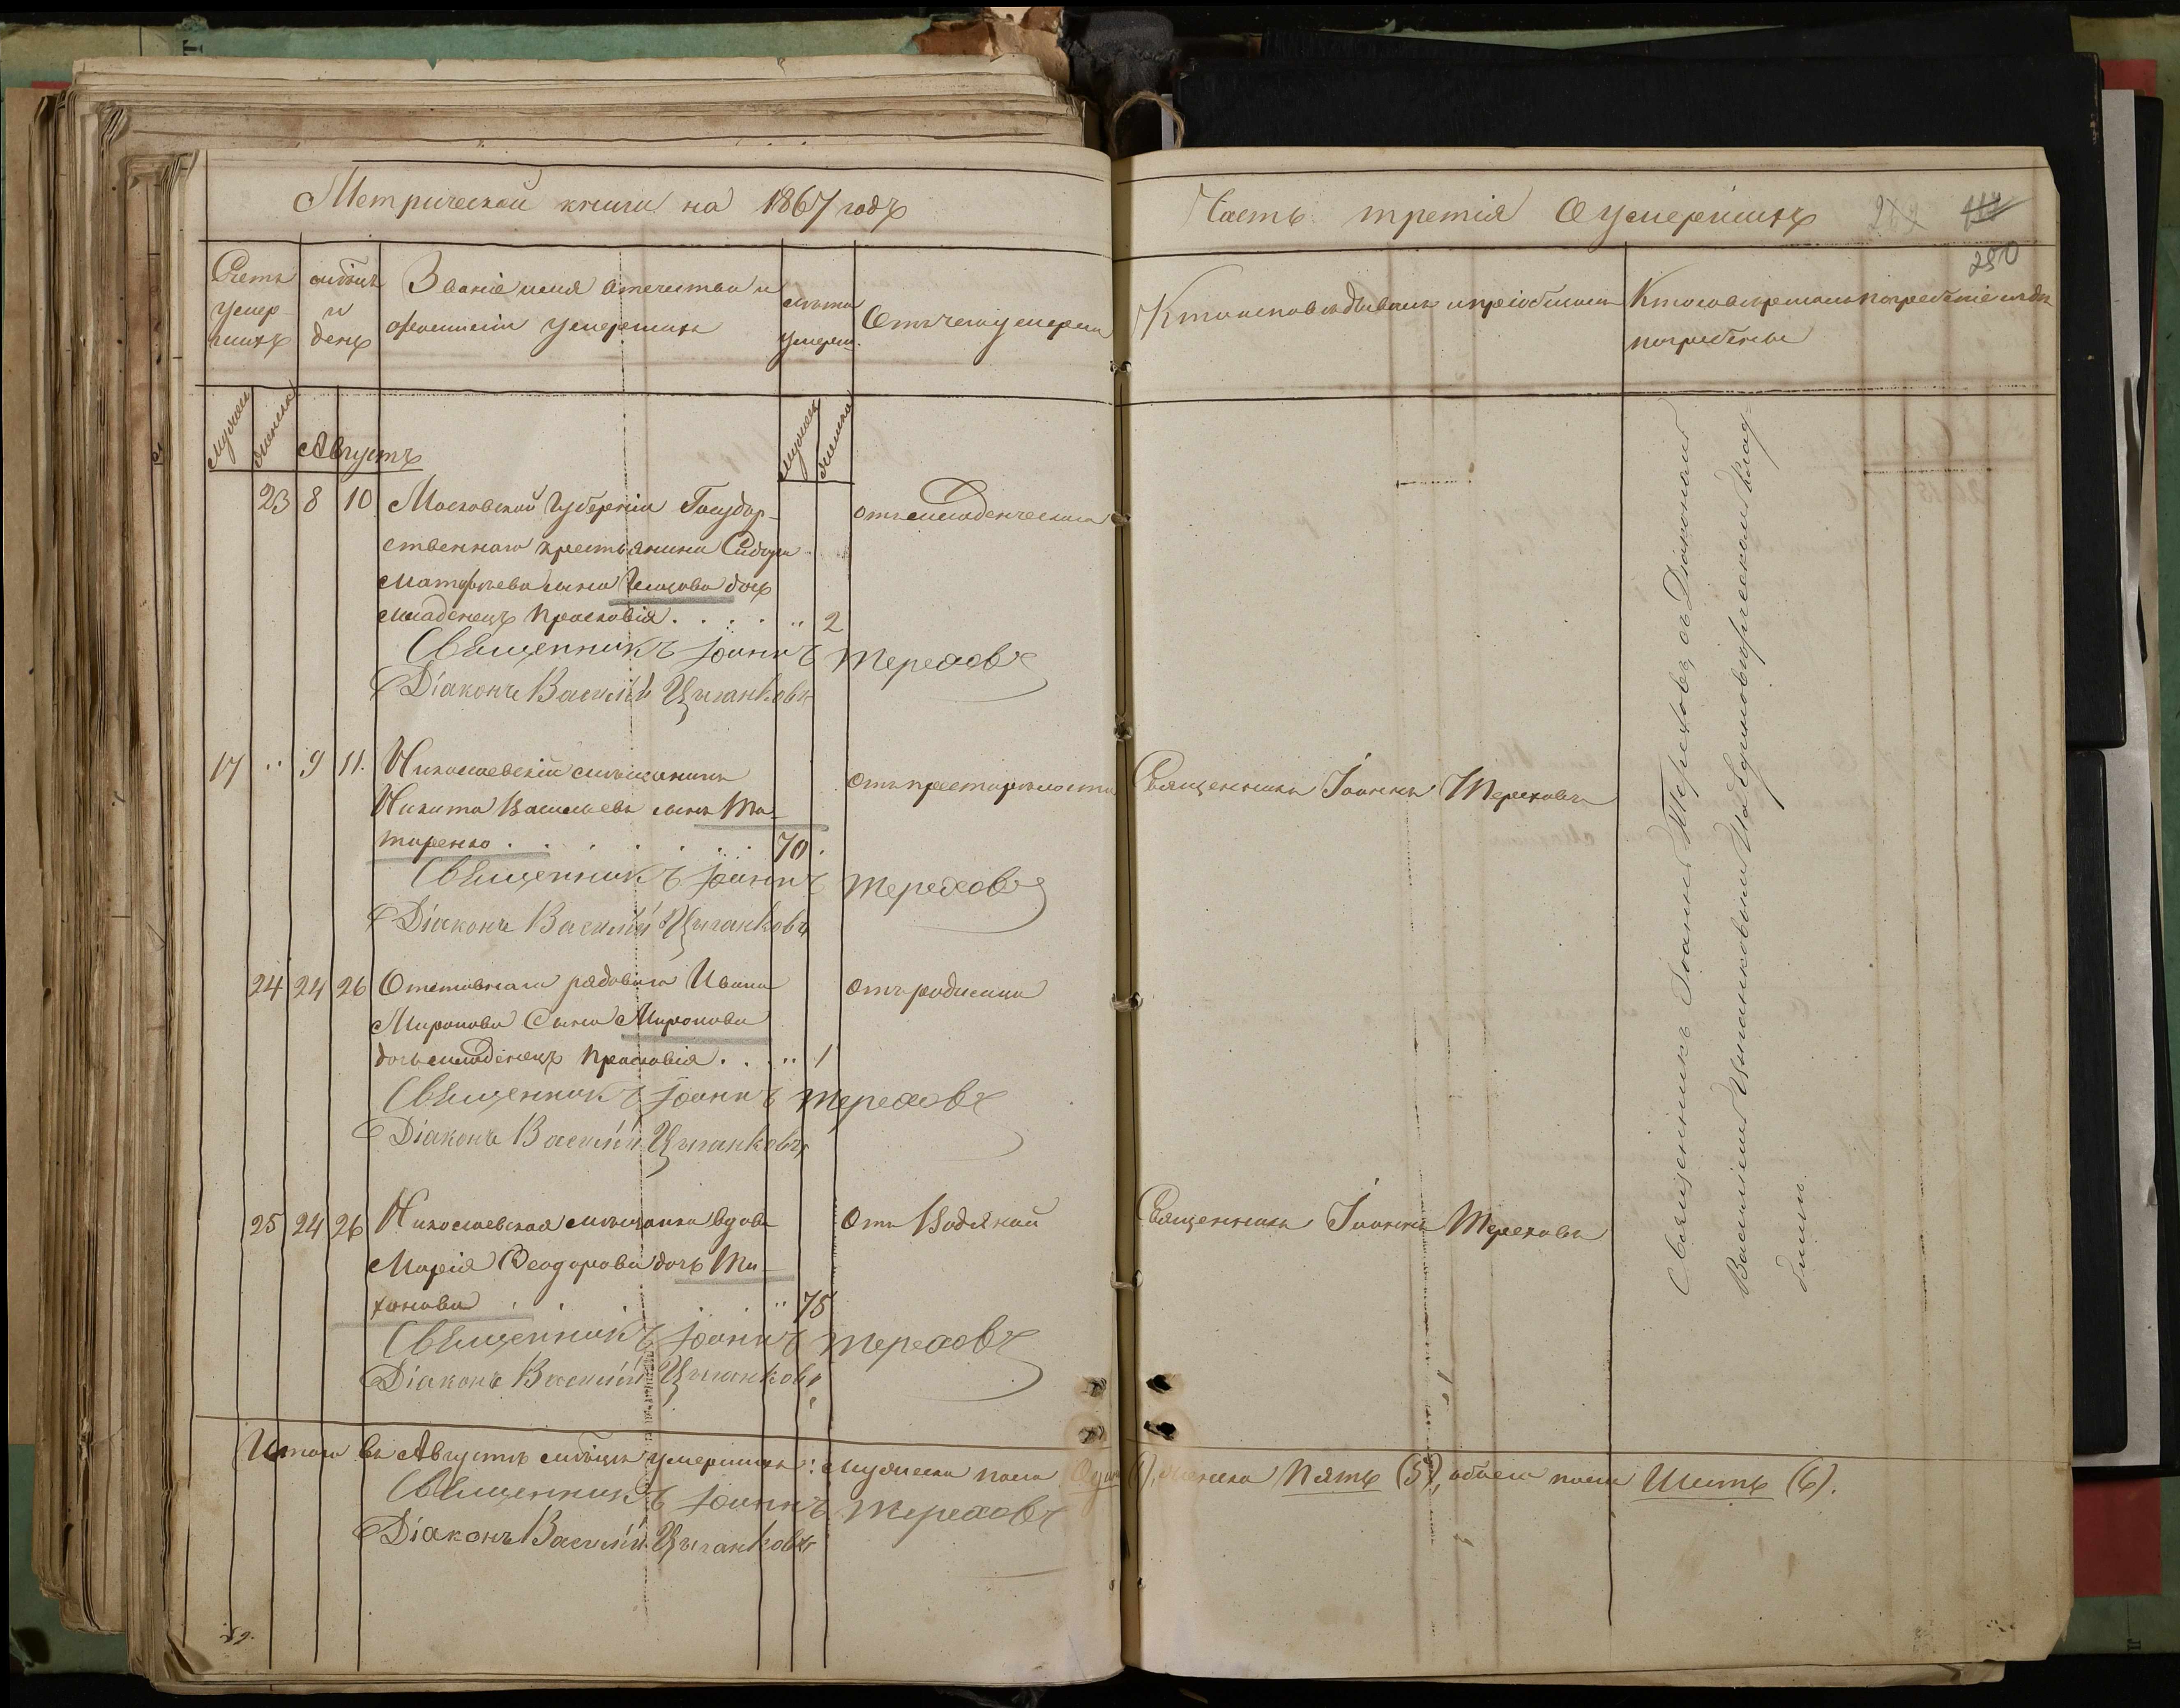 Метрической книги на 1867 годъ
Часть третія О умершихъ
280
Счетъ умер-шихъ
мѣсяцъ и день
Званіе имя отечество и фамилія умершихъ
лѣта умерш.
Отъ чего умерли
Кто исповѣдывалъ и пріобщалъ
Кто совершалъ погребеніе и гдѣ погребены
мужеск
женска
Августъ
мужеск
женска
23 8 10 Московской Губерніи Государ-
отъ младенческаго
ственнаго крестьянина Сидора
Матфѣева сына дочь
младенецъ Просковія . . . . .. 2
Священникъ Іоаннъ Тереховъ
Діаконъ Василій Цыганковъ
17 .. 9 11. Николаевскій мѣщанинъ
отъ престарѣлости
Священникъ Іоаннъ Тереховъ
Никита Васильевъ сынъ Та-
таренко . . . . . . 70 .
Священникъ Іоаннъ Тереховъ
Діаконъ Василій Цыганковъ
24 24 26 Отставнаго рядоваго Ивана
отъ родимца
Миронова Сына Миронова
дочь младенецъ Просковія . . . .. 1
Священникъ Іоаннъ Тереховъ
Діаконъ Василій Цыганковъ
25 24 26 Николаевская мѣщанка вдова
Отъ Водяной
Священникъ Іоаннъ Тереховъ
Марія Феодорова дочь Ти-
хонова . . . . . .. 75
Священникъ Іоаннъ Тереховъ
Діаконъ Василій Цыганковъ
Священникъ Іоаннъ Тереховъ, съ Діакономъ
Василіемъ Цыганковымъ На Клад-
бищѣ
Итого въ Августѣ мѣсяцѣ умершихъ: мужеска пола Одинъ (1), женска Пять (5), обоего пола Шесть (6).
Священникъ Іоаннъ Тереховъ
Діаконъ Василій Цыганковъ